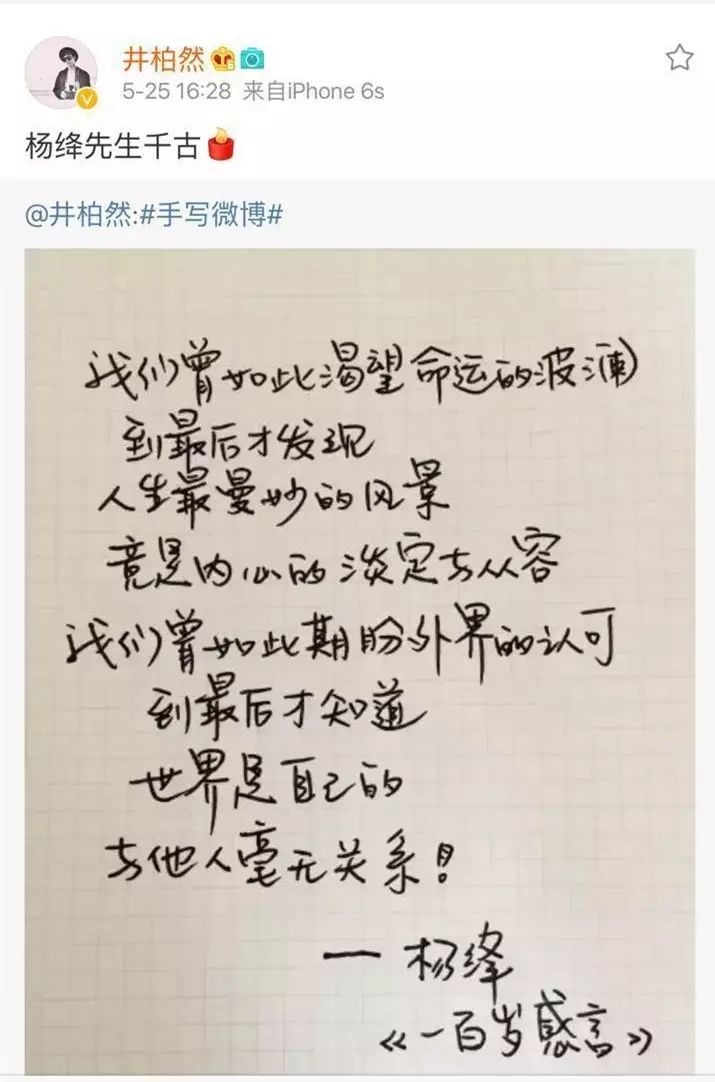 井柏然
5-25 16:28 来自iPhone 6s
杨绛先生千古
@井柏然:#手写微博#
我们曾如此渴望命运的波澜
到最后才发现
人生最曼妙的风景
竟是内心的淡定与从容
我们曾如此期盼外界的认可
到最后才知道
世界是自己的
与他人毫无关系!
— 杨绛
《一百岁感言》